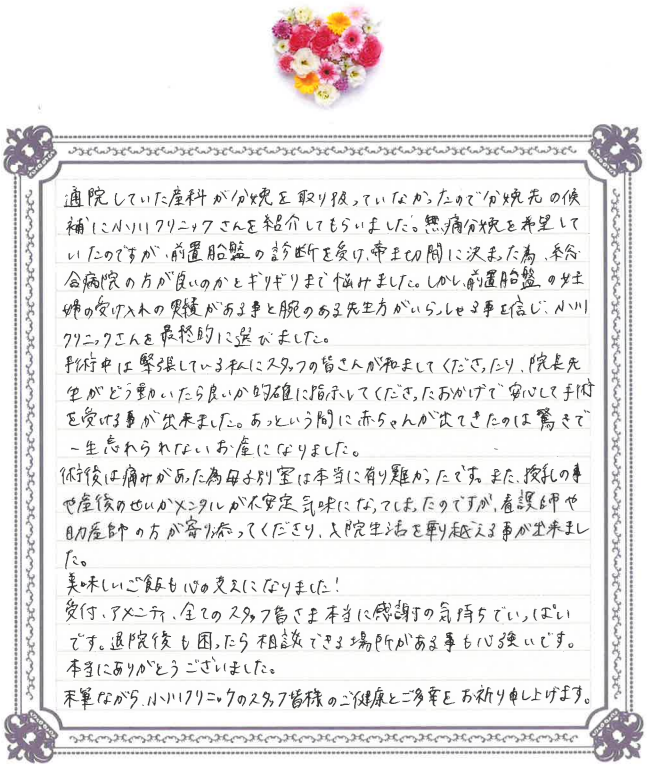 通院していた産科が分娩を取り扱っていなかったので分娩先の候
補に小川クリニックさんを紹介してもらいました。無痛分娩を希望して
いたのですが、前置胎盤の診断を受け、帝王切開に決まった為、総
合病院の方が良いのかとギリギリまで悩みました。しかし、前置胎盤の妊
婦の受け入れの実績がある事と腕のある先生方がいらっしゃる事を信じ、小川
クリニックさんを最終的に選びました。
手術中は緊張している私にスタッフの皆さんが和ましてくださったり、院長先
生がどう動いたら良いか的確に指示してくださったおかげで安心して手術
を受ける事が出来ました。あっという間に赤ちゃんが出てきたのは驚きで
一生忘れられないお産になりました。
術後は痛みがあった為母子別室は本当に有り難かったです。また、授乳の事
や産後のせいかメンタルが不安定気味になってしまったのですが、看護師や
助産師の方が寄り添ってくださり、入院生活を乗り越える事が出来まし
た。
美味しいご飯も心の支えになりました！
受付、アメニティ、全てのスタッフ皆さま本当に感謝の気持ちでいっぱい
です。退院後も困ったら相談できる場所がある事も心強いです。
本当にありがとうございました。
末筆ながら、小川クリニックのスタッフ皆様のご健康とご多幸をお祈り申し上げます。